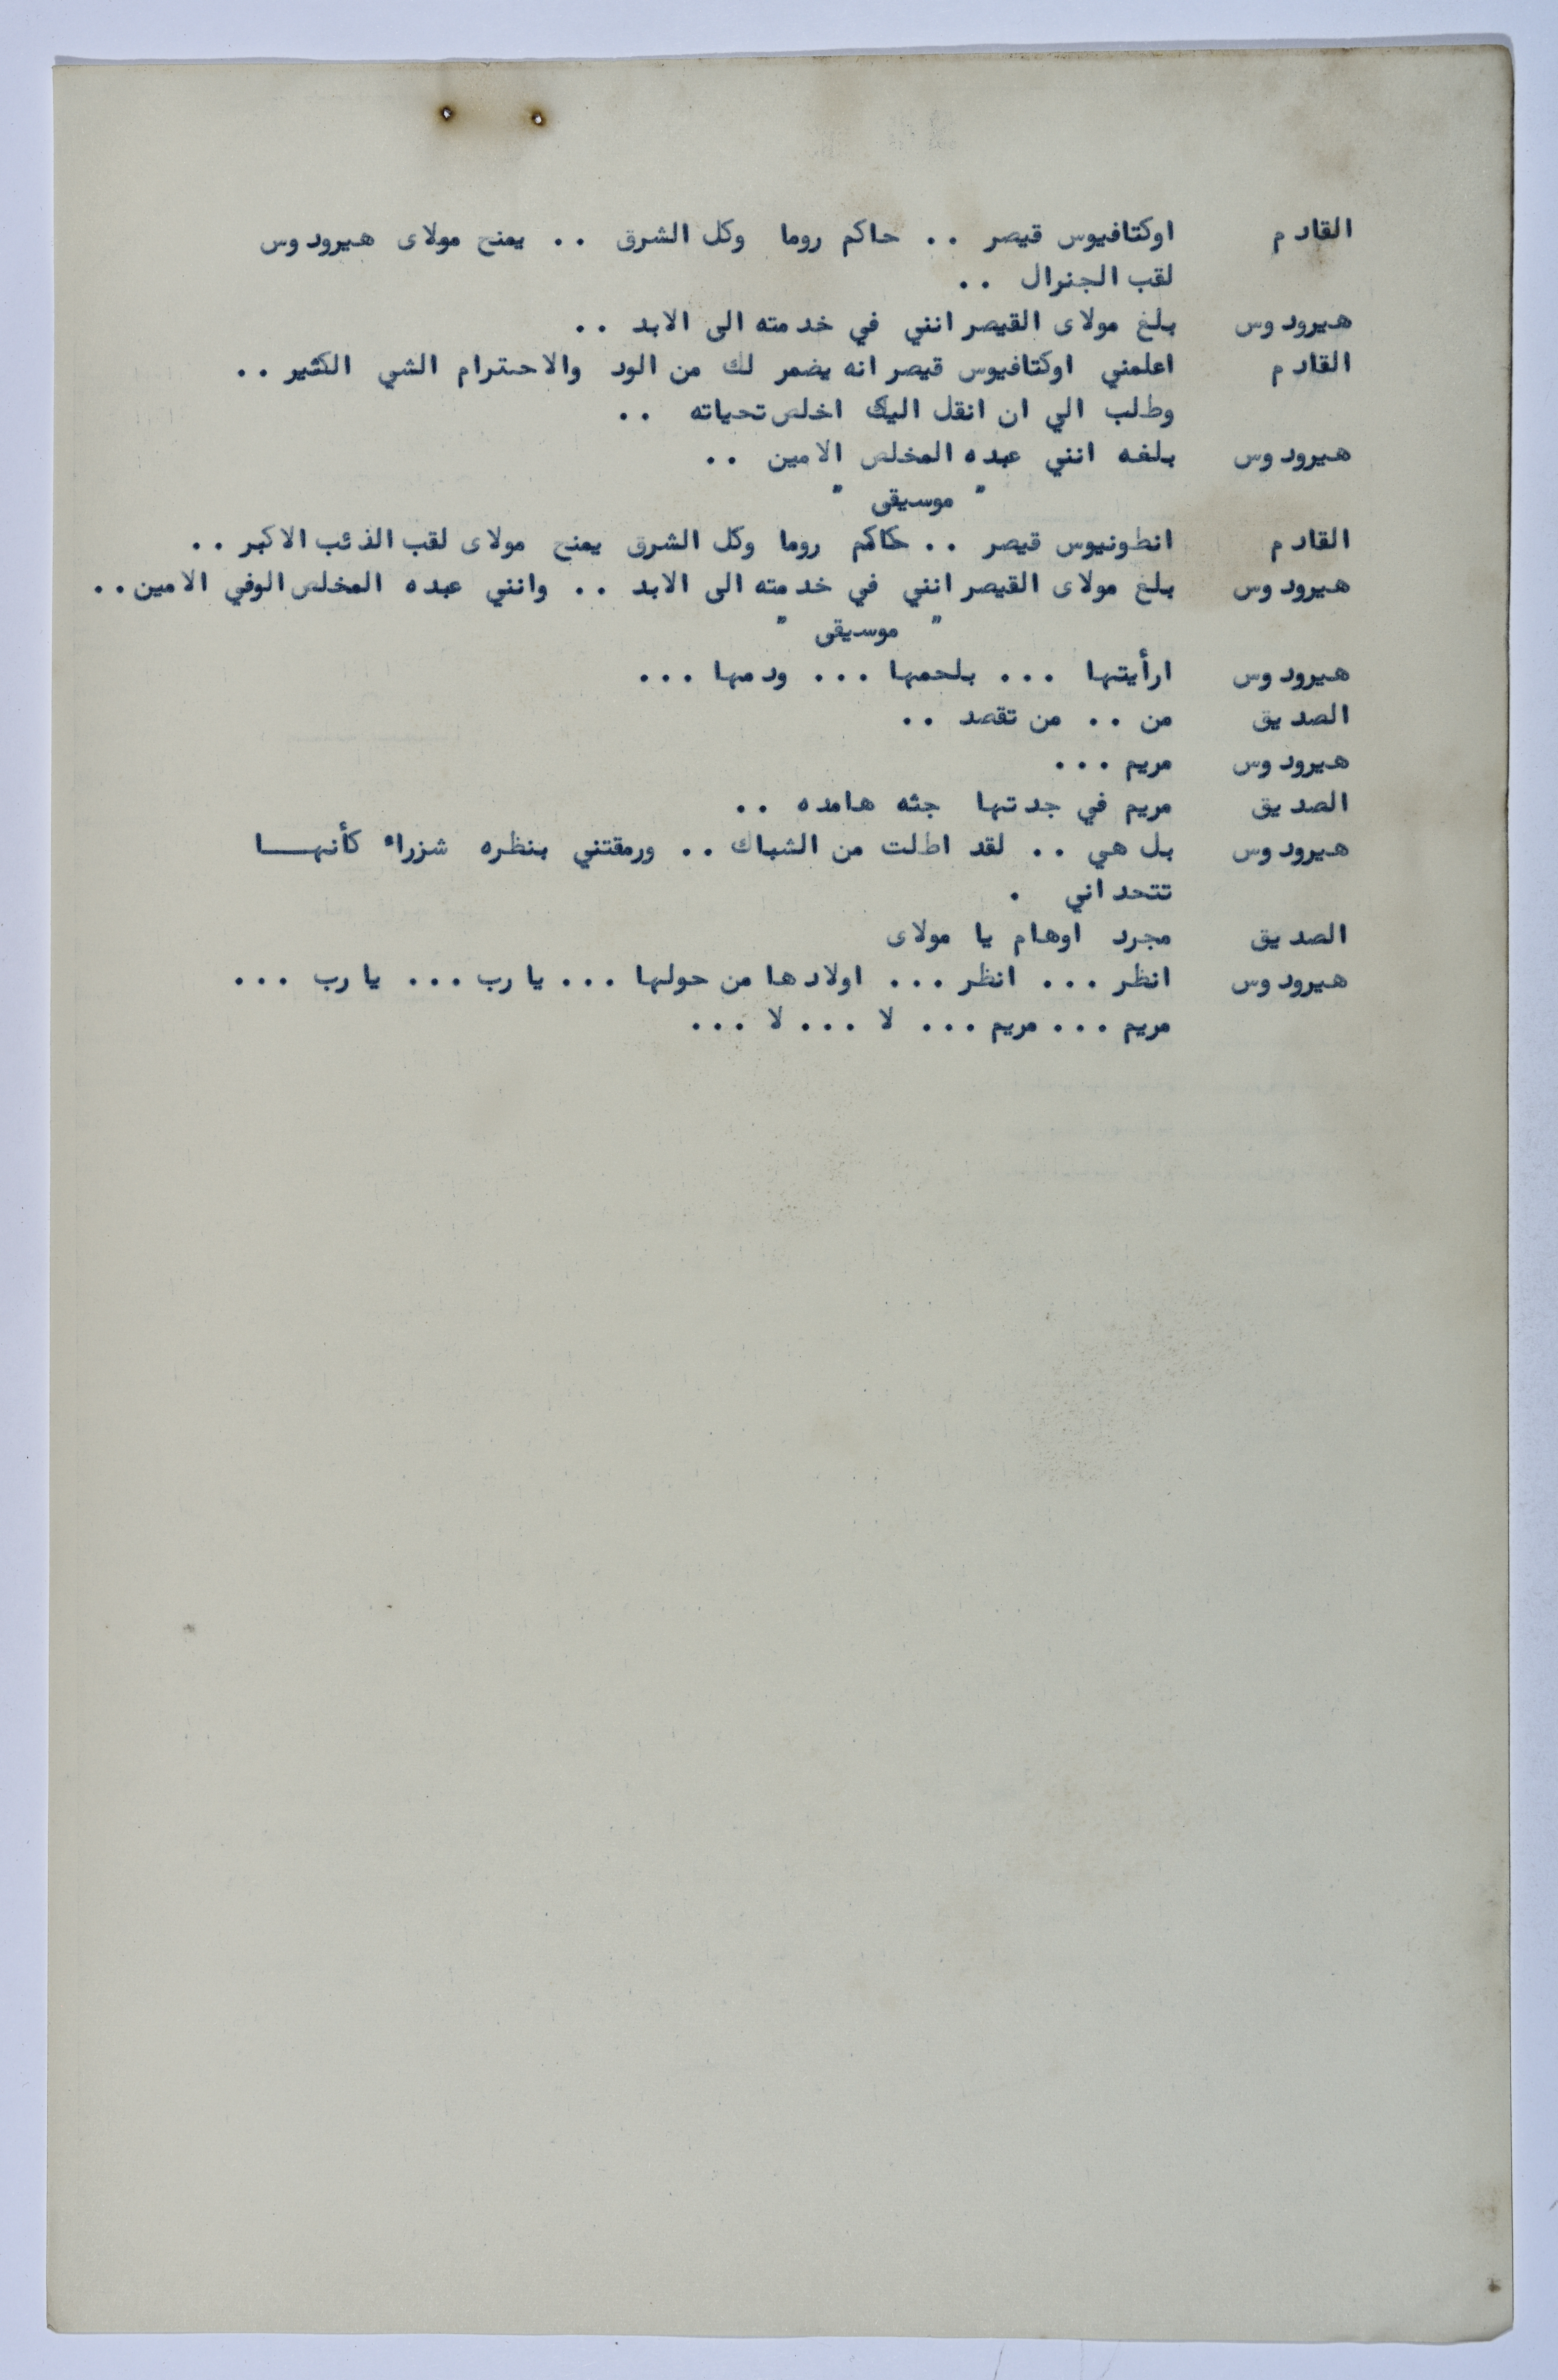 القادم اوكتافيوس قيصر .. حاكم روما وكل الشرق .. يمنح مولاى هيرودوس
لقب الجنرال ..
هيرودوس بلغ مولاى القيصر انني في خدمته الى الابد ..
القادم اعلمني اوكتافيوس قيصر انه يضمر لك من الود والاحترام الشي الكثير ..
وطلب الي ان انقل اليك اخلص تحياته ..
هيرودوس بلغه انني عبده المخلص الامين ..
" موسيقى "
القادم انطونيوس قيصر .. حاكم روما وكل الشرق يمنح مولاى لقب الذئب الاكبر ..
هيرودوس بلغ مولاى القيصر انني في خدمته الى الابد .. وانني عبده المخلص الوفي الامين ..
" موسيقى "
هيرودوس ارأيتها ... بلحمها ... ودمها ...
الصديق من .. من تقصد ..
هيرودوس مريم ...
الصديق مريم في جدتها جثه هامده ..
هيرودوس بل هي .. لقد اطلت من الشباك .. ورمقتني بنظره شزراء كأنهـــا
تتحداني .
الصديق مجرد اوهام يا مولاى
هيرودوس انظر ... انظر ... اولادها من حولها ... يا رب ... يا رب ...
مريم ... مريم ... لا ... لا ...